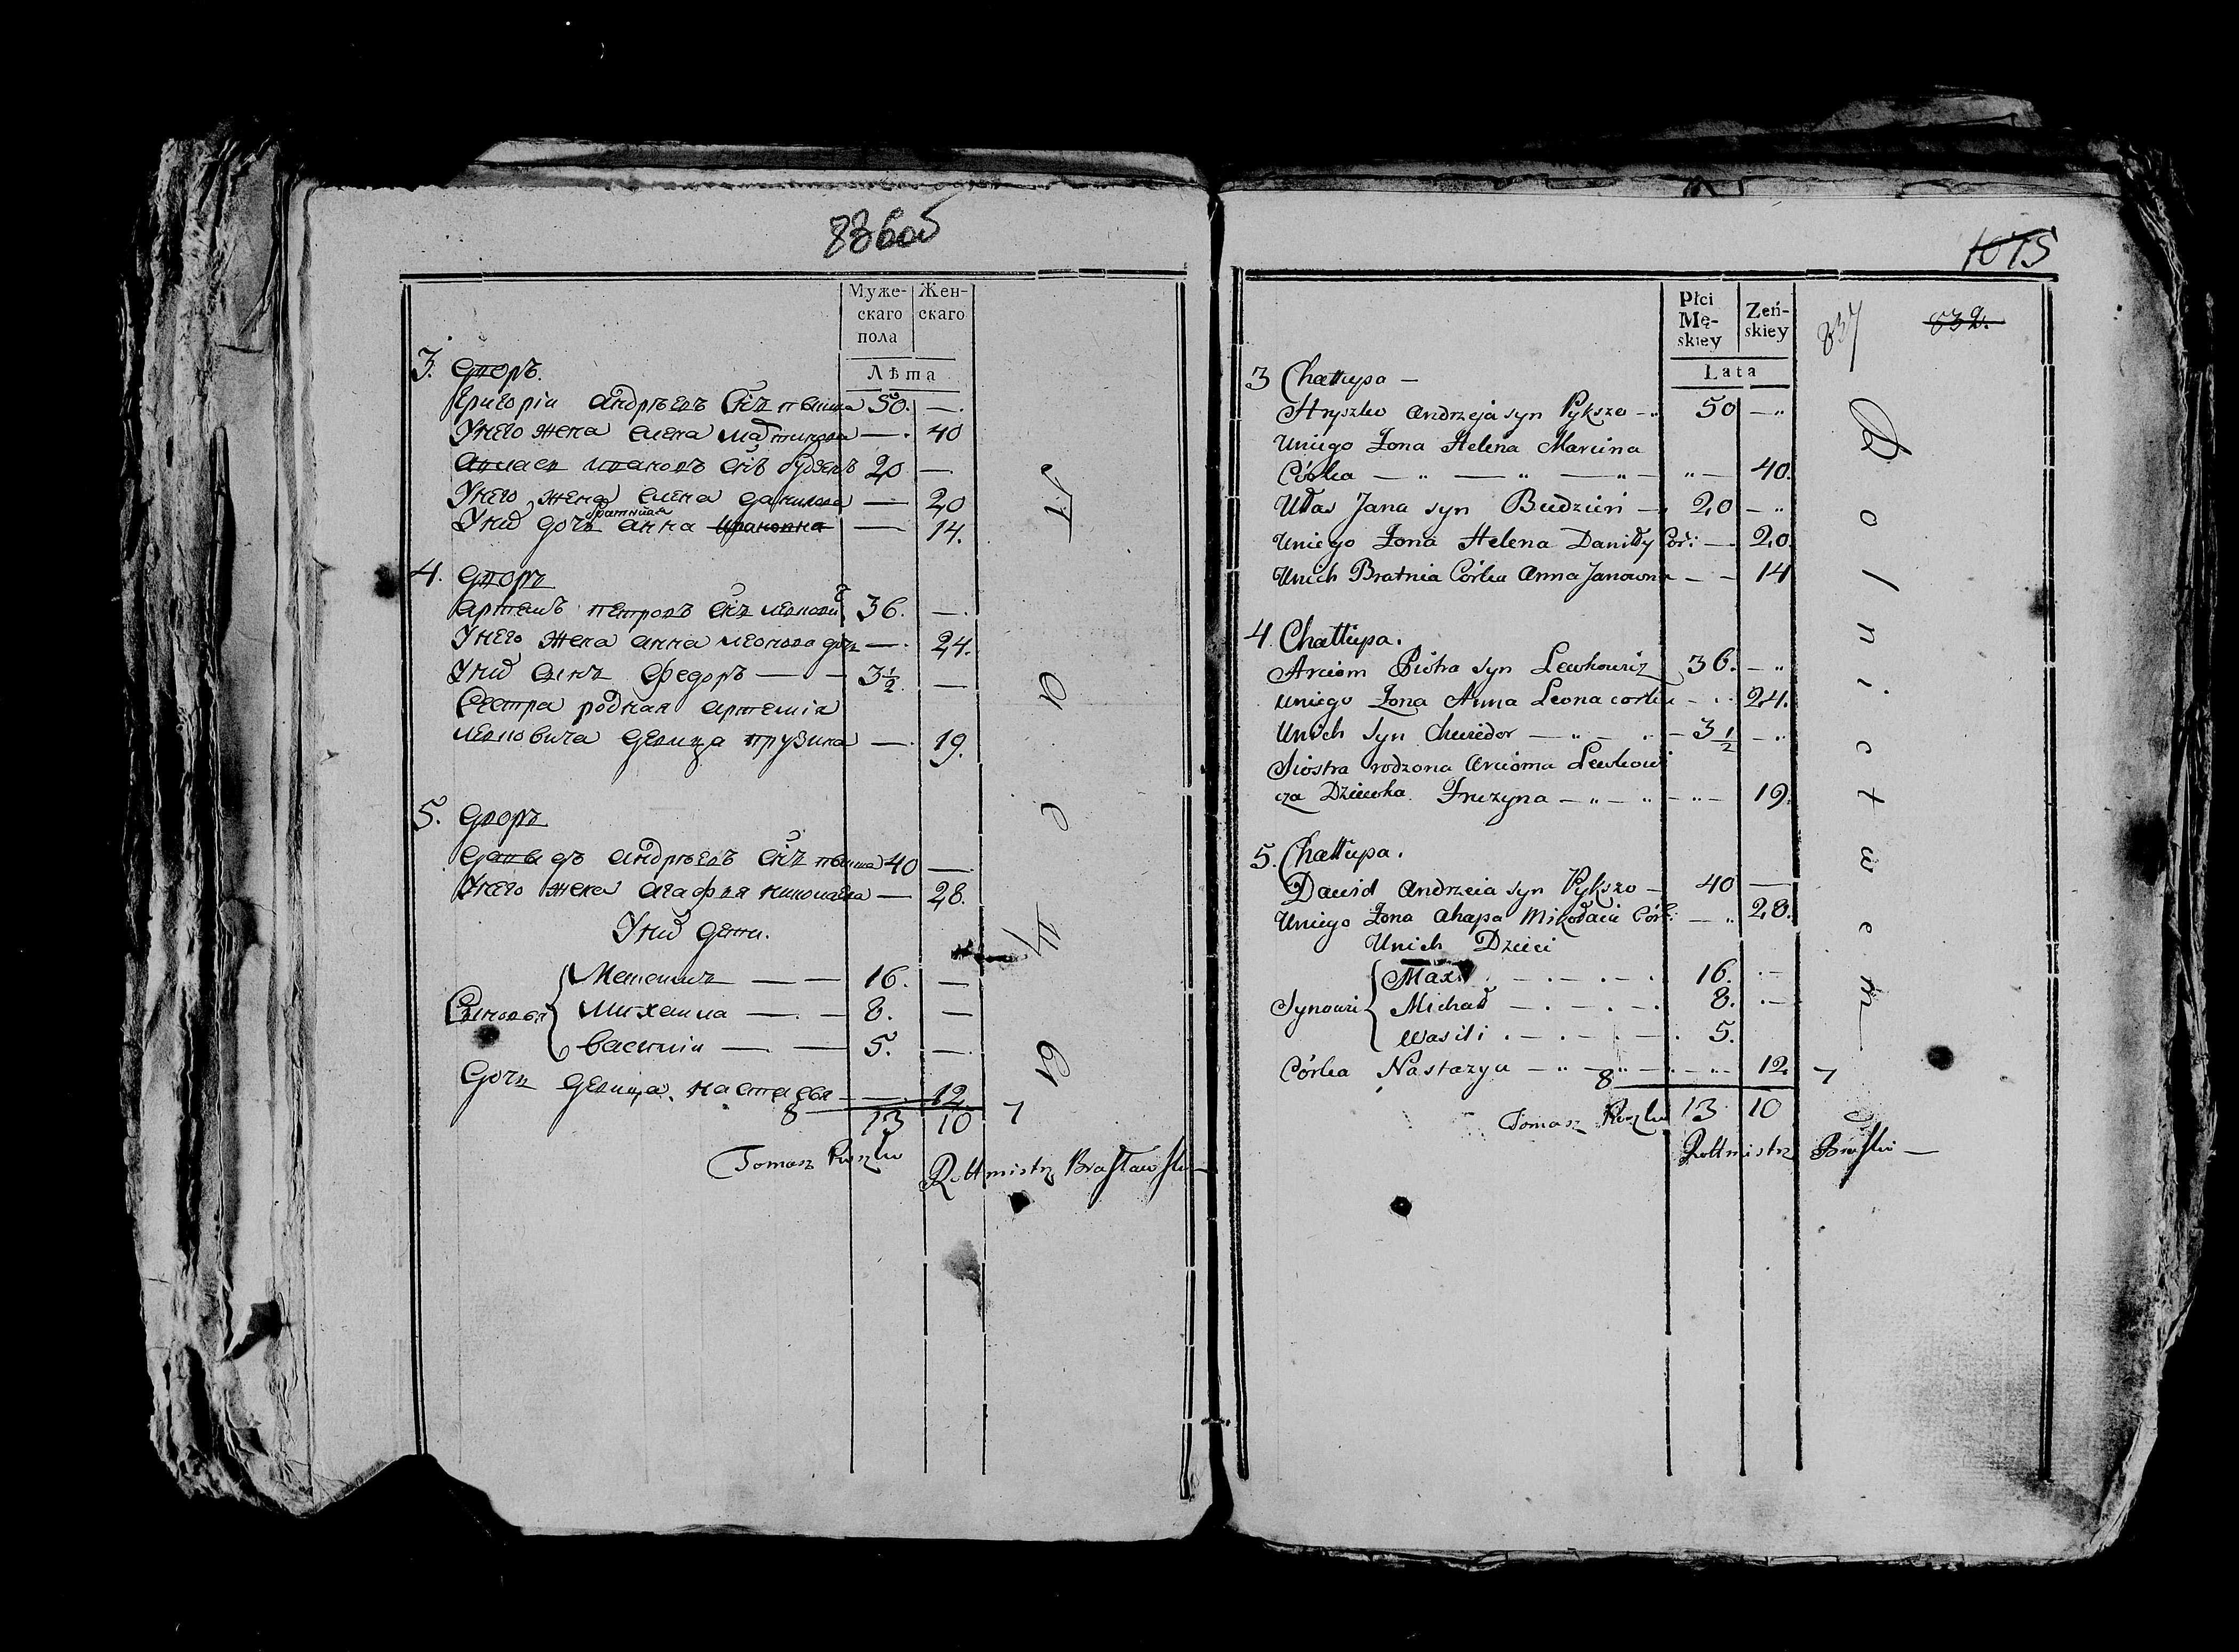 836об
Муже-
скаго
пола
Жен-
скаго
Лѣта
3. дворъ.
Григорiи андрѣевъ сн пыкша 50. —.
Унего жена елена мартинова —. 40
Авласъ ивановъ снъ будзенъ 20 —.
Унего жена елена данилова — 20
братнiая
Уних дочъ анна Ивановна — 14.
4. дворъ
артемъ петровъ снъ левкови 36. —.
Унего жена анна леонова дочъ —. 24.
Уних сынъ федоръ — — 3½. —
Сестра родная артемiя
левковича девица прузына —. 19.
5. дворъ
давыдъ андрѣевъ снъ пыкша 40 —.
Унего жена агафия николаева — 28.
Уних дети.
Максимъ — — 16. —
Сыновья Михаила —. — 8. —
василiи — — 5. —.
Дочъ девица. настасья — —. 12
8 13 10 7
Tomasz Rotmistrz Brasławski
1075
Płci
Mę-
skiey
Zeń-
skiey
Lata
837
832.
3 Chałłupa —
Hryszko Andrzeja syn Pykszo — 50 — "
Uniego Żona Helena Marcina
Córka — " — " — " — " — 40.
Ułas Jana syn Budzień — 20 — "
Uniego Żona Helena Daniłły Cor: — 20.
Unich Bratnia Córka Anna Janowna — — 14
4. Chałłupa.
Arciom Piotra syn Lewkowicz 36. — "
Uniego Żona Anna Leona corka — 24.
Unich syn Chwiedor — " — " — 3½ — "
Siostra rodzona Arcioma Lewkowi
cza Dziewka Pruzyna — " — " — " — 19.
5. Chałłupa.
Dawid Andrzeia syn Pykszo — 40 —
Uniego Żona Ahapa Mikołaia Cór: — " 28.
Unich Dzieci
Max. — . — . — . 16. . —
Synowi Michał — . — . — . 8. . —
Wasili . — . — . — . 5.
Córka Nastazya — " — " — . — " — 12.
8 13 10 7
Tomasz Rotmistrz Brasł
Dolnictwem